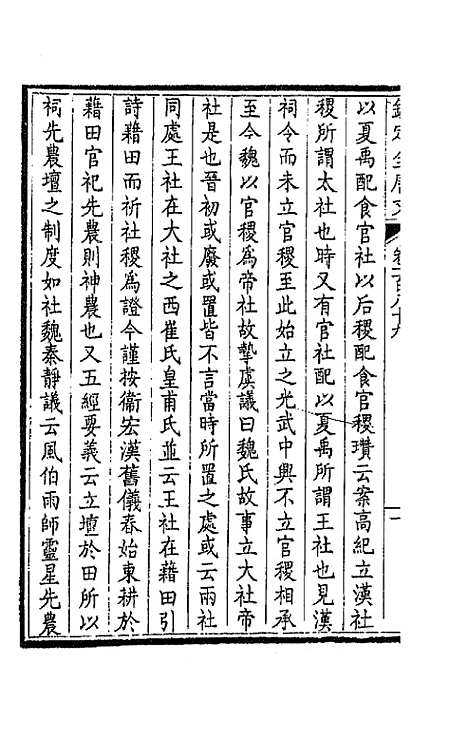 欽定全唐文
卷一百八十九
一
以夏禹配食官社以后稷配食官稷瓚云案高紀立漢社
稷所謂太社也時又有官社配以夏禹所謂王社也見漢
祠令而未立官稷至此始立之光武中興不立官稷相承
至今魏以官稷為帝社故摯虞議曰魏氏故事立大社帝
社是也晉初或廢或置皆不言當時所置之處或云兩社
同處王社在大社之西崔氏皇甫氏並云王社在藉田引
詩藉田而祈社稷為證今謹按衞宏漢舊儀春始東耕於
藉田官祀先農則神農也又五經要義云立壇於田所以
祠先農壇之制度如社魏秦靜議云風伯雨師靈星先農